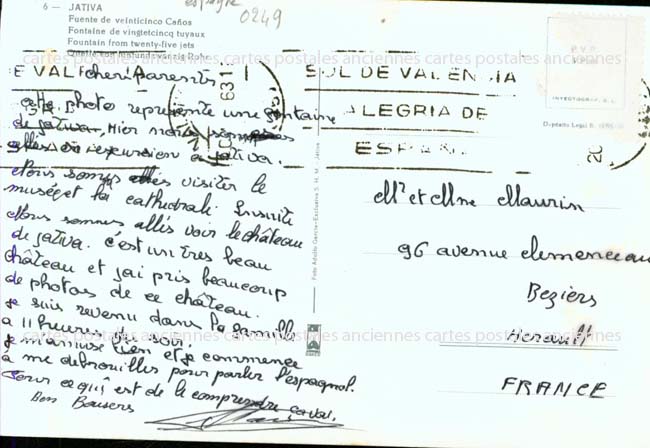 espagne
0249
6 — JATIVA
Fuente de veinticinco Caños
Fontaine de vingtcincq tuyaux
Fountain from twenty-five jets
Quelle von fünfundzwanzig Rohr
cartes postales anciennes cartes postales anciennes cartes postales
cheri Parents
cette photo représente une fontaine
de jativa. Hier nous sommes
allés en excursion a jativa.
Nous sommes allés visiter le
musée et la cathédrale. Ensuite
Nous sommes allés voir le château
de jativa. c'est un très beau
château et j'ai pris beaucoup
de photos de ce château.
je suis revenu dans la famille
a 11 heures du soir.
je m'amuse bien et je commence
à me débrouiller pour parler l'espagnol.
Pour ce qui est de le comprendre ca va.
Bons Baisers
E VAL
631
SOL DE VALENCIA
ALEGRIA DE
ESPAÑA
20
Foto Adolfo García-Exclusiva S. H. M. Játiva
INVESTIGRAF, S. L.
Depósito Legal B.
Mr et Mme Maurin
96 avenue clemenceau
Beziers
Herault
FRANCE
cartes postales anciennes cartes postales anciennes cartes postales